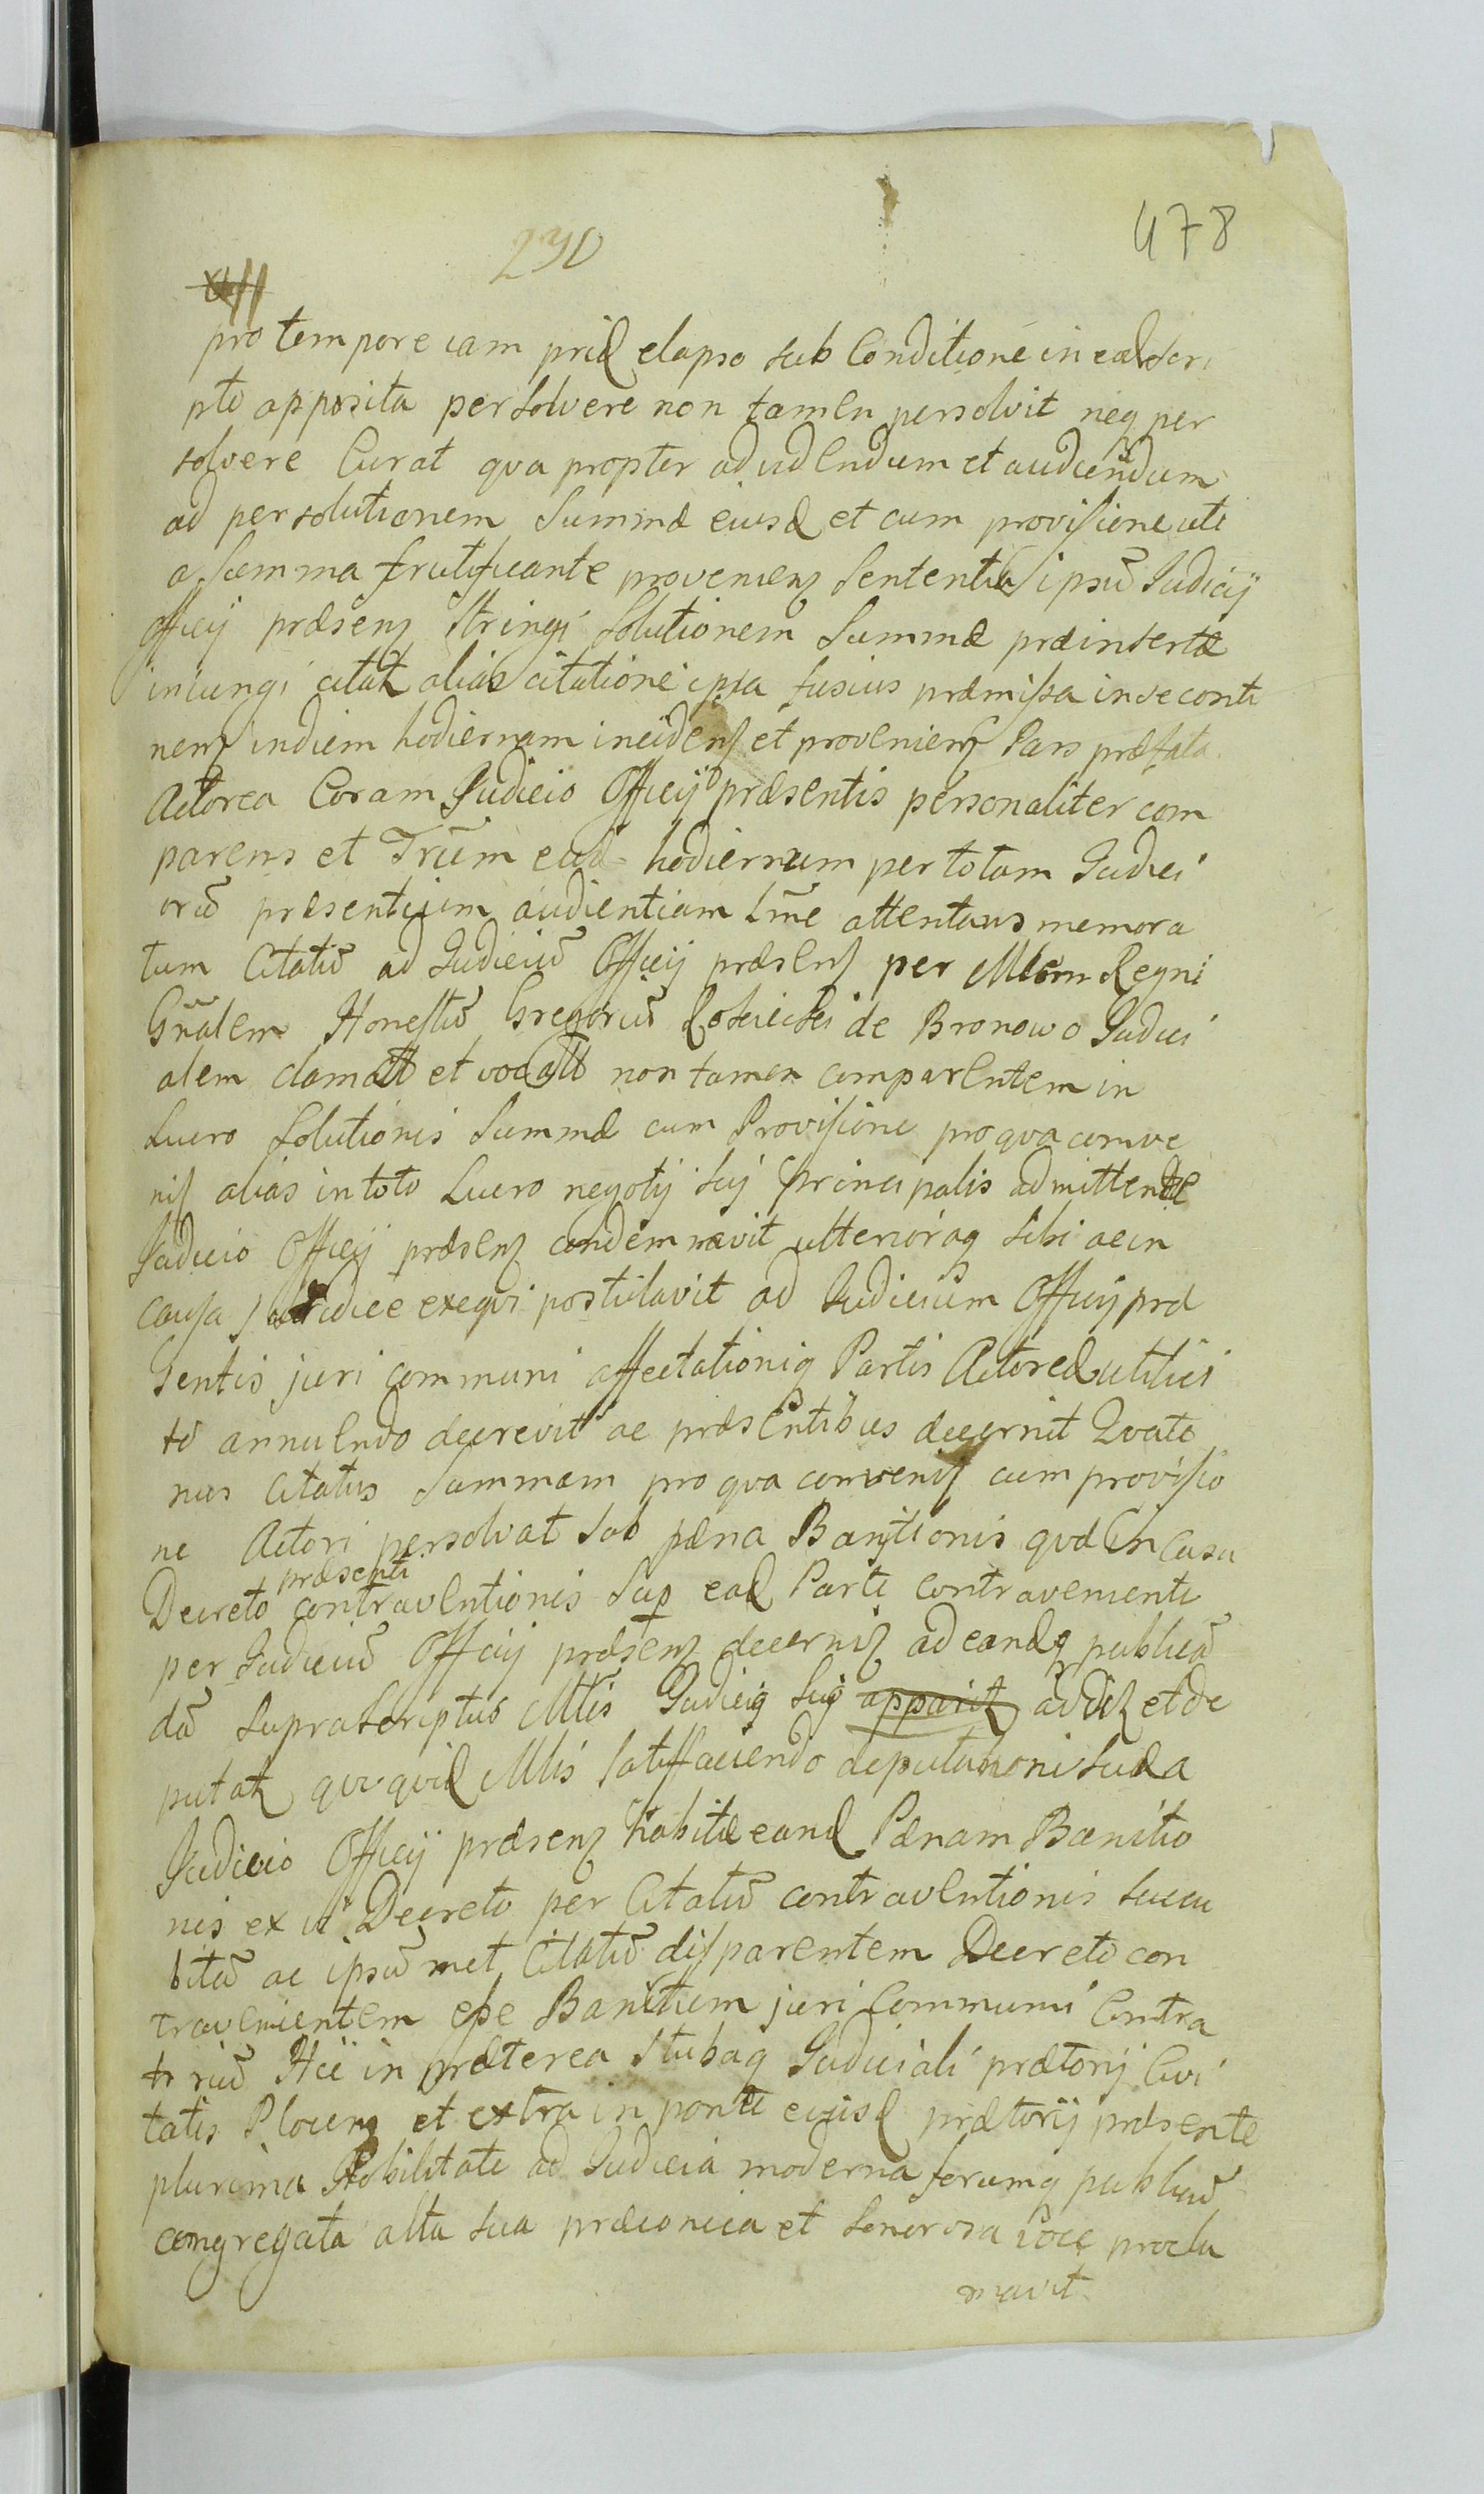 230
478
pro tempore iam prid elapso sub Conditione in ead scri
pto apposita persolvere non tamen persolvit neq per
solvere Curat qva propter ad videndum et audiendum
ad persolutionem Summæ eiusd et cum provisione uti
a Summa frutificante provenien Sententia ipsū Judicij
Officij præsen stringi Solutionem Summæ præinsertæ
iniungi citat alias citatione ipsa fusius præmissa in se conti
nen in diem hodiernam inciden et provenien Pars præfata
Actorea Coram Judicio Officij præsentis personaliter com
parens et Trūm eūd hodiernum per totam Judici
orū præsentium audientiam Ltme attentans memora
tum Citatū ad Judiciū Officij præsen per Mlem Regni
Gñalem Honestū Gregoriū de Bronowo Judici
alem clamatt et vocatt non tamen comparentem in
Lucro Solutionis Summæ cum Provisione pro qva conve
nis alias in toto Lucro negotij sui principalis admittende
Judicio Officij præsen condemnavit ulterioraq sibi ac in
causa Juridice exeqvi postulavit ad Judicium Officij præ
sentis juri communi affectationiq Partis Actoreæ
to annuendo decrevit ac præsentibus decernit Qvate
nus Citatus Summam pro qva convenis cum provisio
ne Actori persolvat sub pæna Banitionis qvæ in casu
Decreto præsenti contraventionis sup ead Parte contravenienti
per Judiciū Officij præsen decernit ad eandq publicā
dā suprascriptus Mlis Judiciq suq apparit addit et de
putat qvi qvid Mlis Satisfaciendo deputationi suæ a
Judicio Officij præsen habitæ eand Pænam Banitio
nis ex vi Decreto per Citatū contraventionis succu
bitā ac ipsū met Citatū disparentem Decreto con
travenientem esse Banitum juri Communi Contra
riū Hic in præterea Stubaq Judiciali prætorij Civi
tatis Ploceñ et extra in ponte eiusd prætorij præsente
plurima Nobilitate ad Judicia moderna forumq publicū
congregata alta sua præconica et sonorosa voce procla
mavit